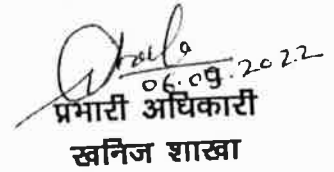 06.09.2022
प्रभारी अधिकारी
खनिज शाखा